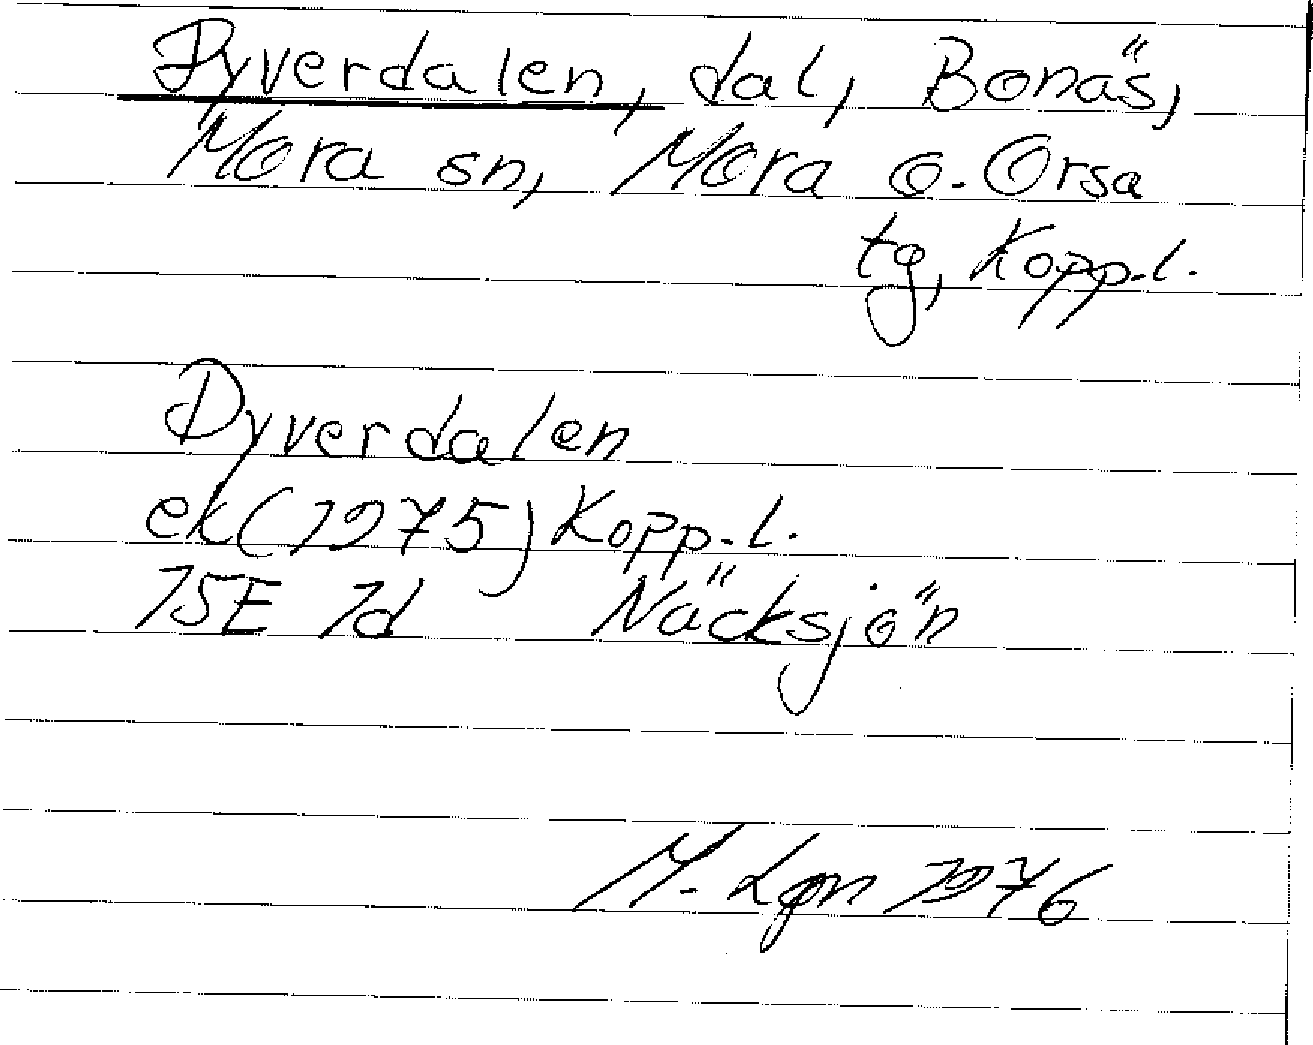 Dyverdalen, dal, Bonäs,
Mora sn, Mora o. Orsa
tg, Kopp.l.
Dyverdalen
ek (1975) Kopp.l.
15E 1d Näcksjön
M. Lgn 1976